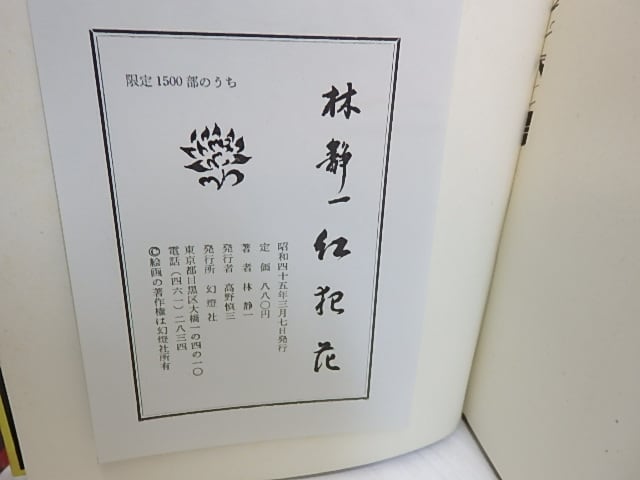 限定1500部のうち
林静一 紅犯花
昭和四十五年三月七日発行
定価 八八〇円
著者 林静一
発行者 高野慎三
発行所 幻燈社
東京都目黒区大橋一の四の一〇
電話(四六一)二八三四
©絵画の著作権は幻燈社所有